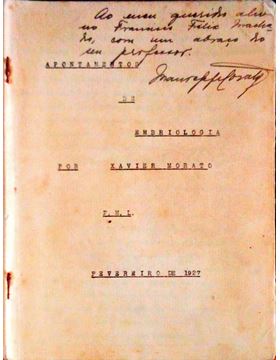 Ao meu querido alu-
no Francisco Felix Macha-
do, com um abraço do
seu professor.
APONTAMENTOS
DE
EMBRIOLOGIA
POR XAVIER MORATO
F. M. L.
FEVEREIRO DE 1927